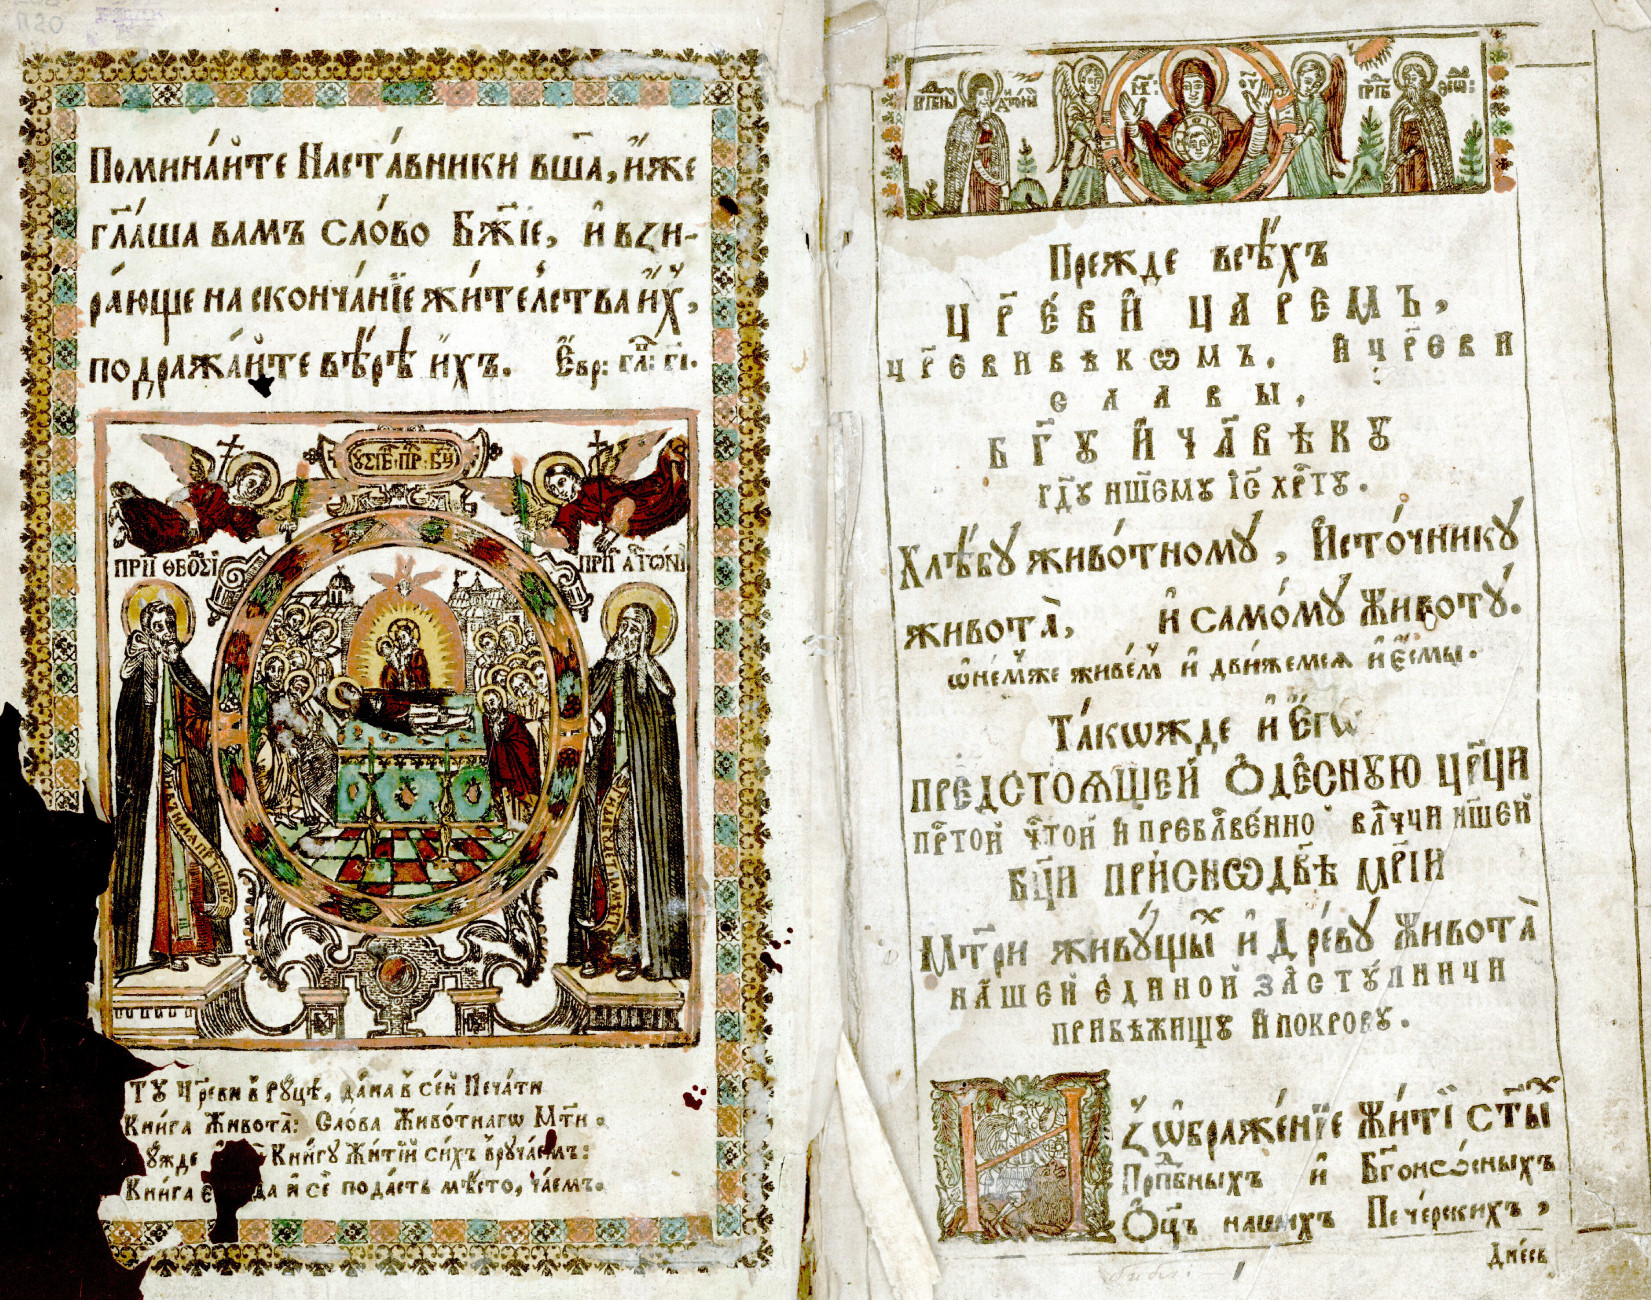 Помина́йте Наста́вники вш҃а, и҆́же
гл҃аша вамъ сло́во Бж҃їе, и҆ взи-
ра́юще на сконча́нїе жи́тельства и҆́х,
подража́йте вѣ́рѣ и҆́хъ. Є҆вр: гл҃: г҃і.
ОУСПЕ҃ ПР҃ БЦ҃
ПРП҃ ѲЕО҃СІ
ПРП҃ А҆Т҃ОНІ
ТУ Цр҃еви в̾ Ру́цѣ, да́на в̾ се́й Печа́ти
Кни́га Живота̀: Сло́ва Живо́тнагѡ Мт҃и.
Ту́жде Кни́гу Жи́тїй си́хъ вруча́емъ:
Кни́га и҆ се́ пода́стъ мѣ́сто, ча́емъ.
ПРП҃БНЫ А҆НТѠ́НІЙ
МР҃: Ѳ҃У
ПРП҃Б ѲЕѠ:
Прежде всѣ́хъ
ЦР҃Е́ВИ ЦАРЕ́МЪ,
ЦР҃ЕВИ ВѢКѠМЪ, И҆ ЦР҃ЕВИ
СЛАВЫ,
БГ҃У И҆ ЧЛ҃ВѢКУ
ГД҃У НШ҃ЕМУ І҆С҃ ХРТ҃У.
Хлѣ́бу живо́тному, И҆сто́чнику
живота̀, и҆ само́му Животу́.
ѡ҆ не́мже живе́м и҆ дви́жемся и҆ є҆смы̀.
Та́кѡжде и҆ Є҆гѡ̀
ПРЕДСТОѦЩЕЙ Ѡ҆ДЕСНУЮ ЦР҃ЦИ
ПРТ҃ОЙ ЧТ҃ОЙ И҆ ПРЕБЛ҃ВЕ́ННО ВЛЧ҃ЦИ НШ҃ЕЙ
БЦ҃И ПРИСНѠДВ҃Ѣ МР҃ІИ
Мт҃ри живу́щы́х и҆ Дре́ву Живота̀
НА́ШЕЙ Е҆ДИНОЙ ЗАСТУ́ПНИЧИ
ПРИБѢЖИЩУ И҆ ПОКРОВУ.
И҆зѡ҆браже́нїе Жи́тї ст҃ы́х
Прпⷣбныхъ и҆ Бг҃оно́сныхъ
Ѻ҆ц҃ъ нашихъ Пече́рскихъ,
Дне́сь